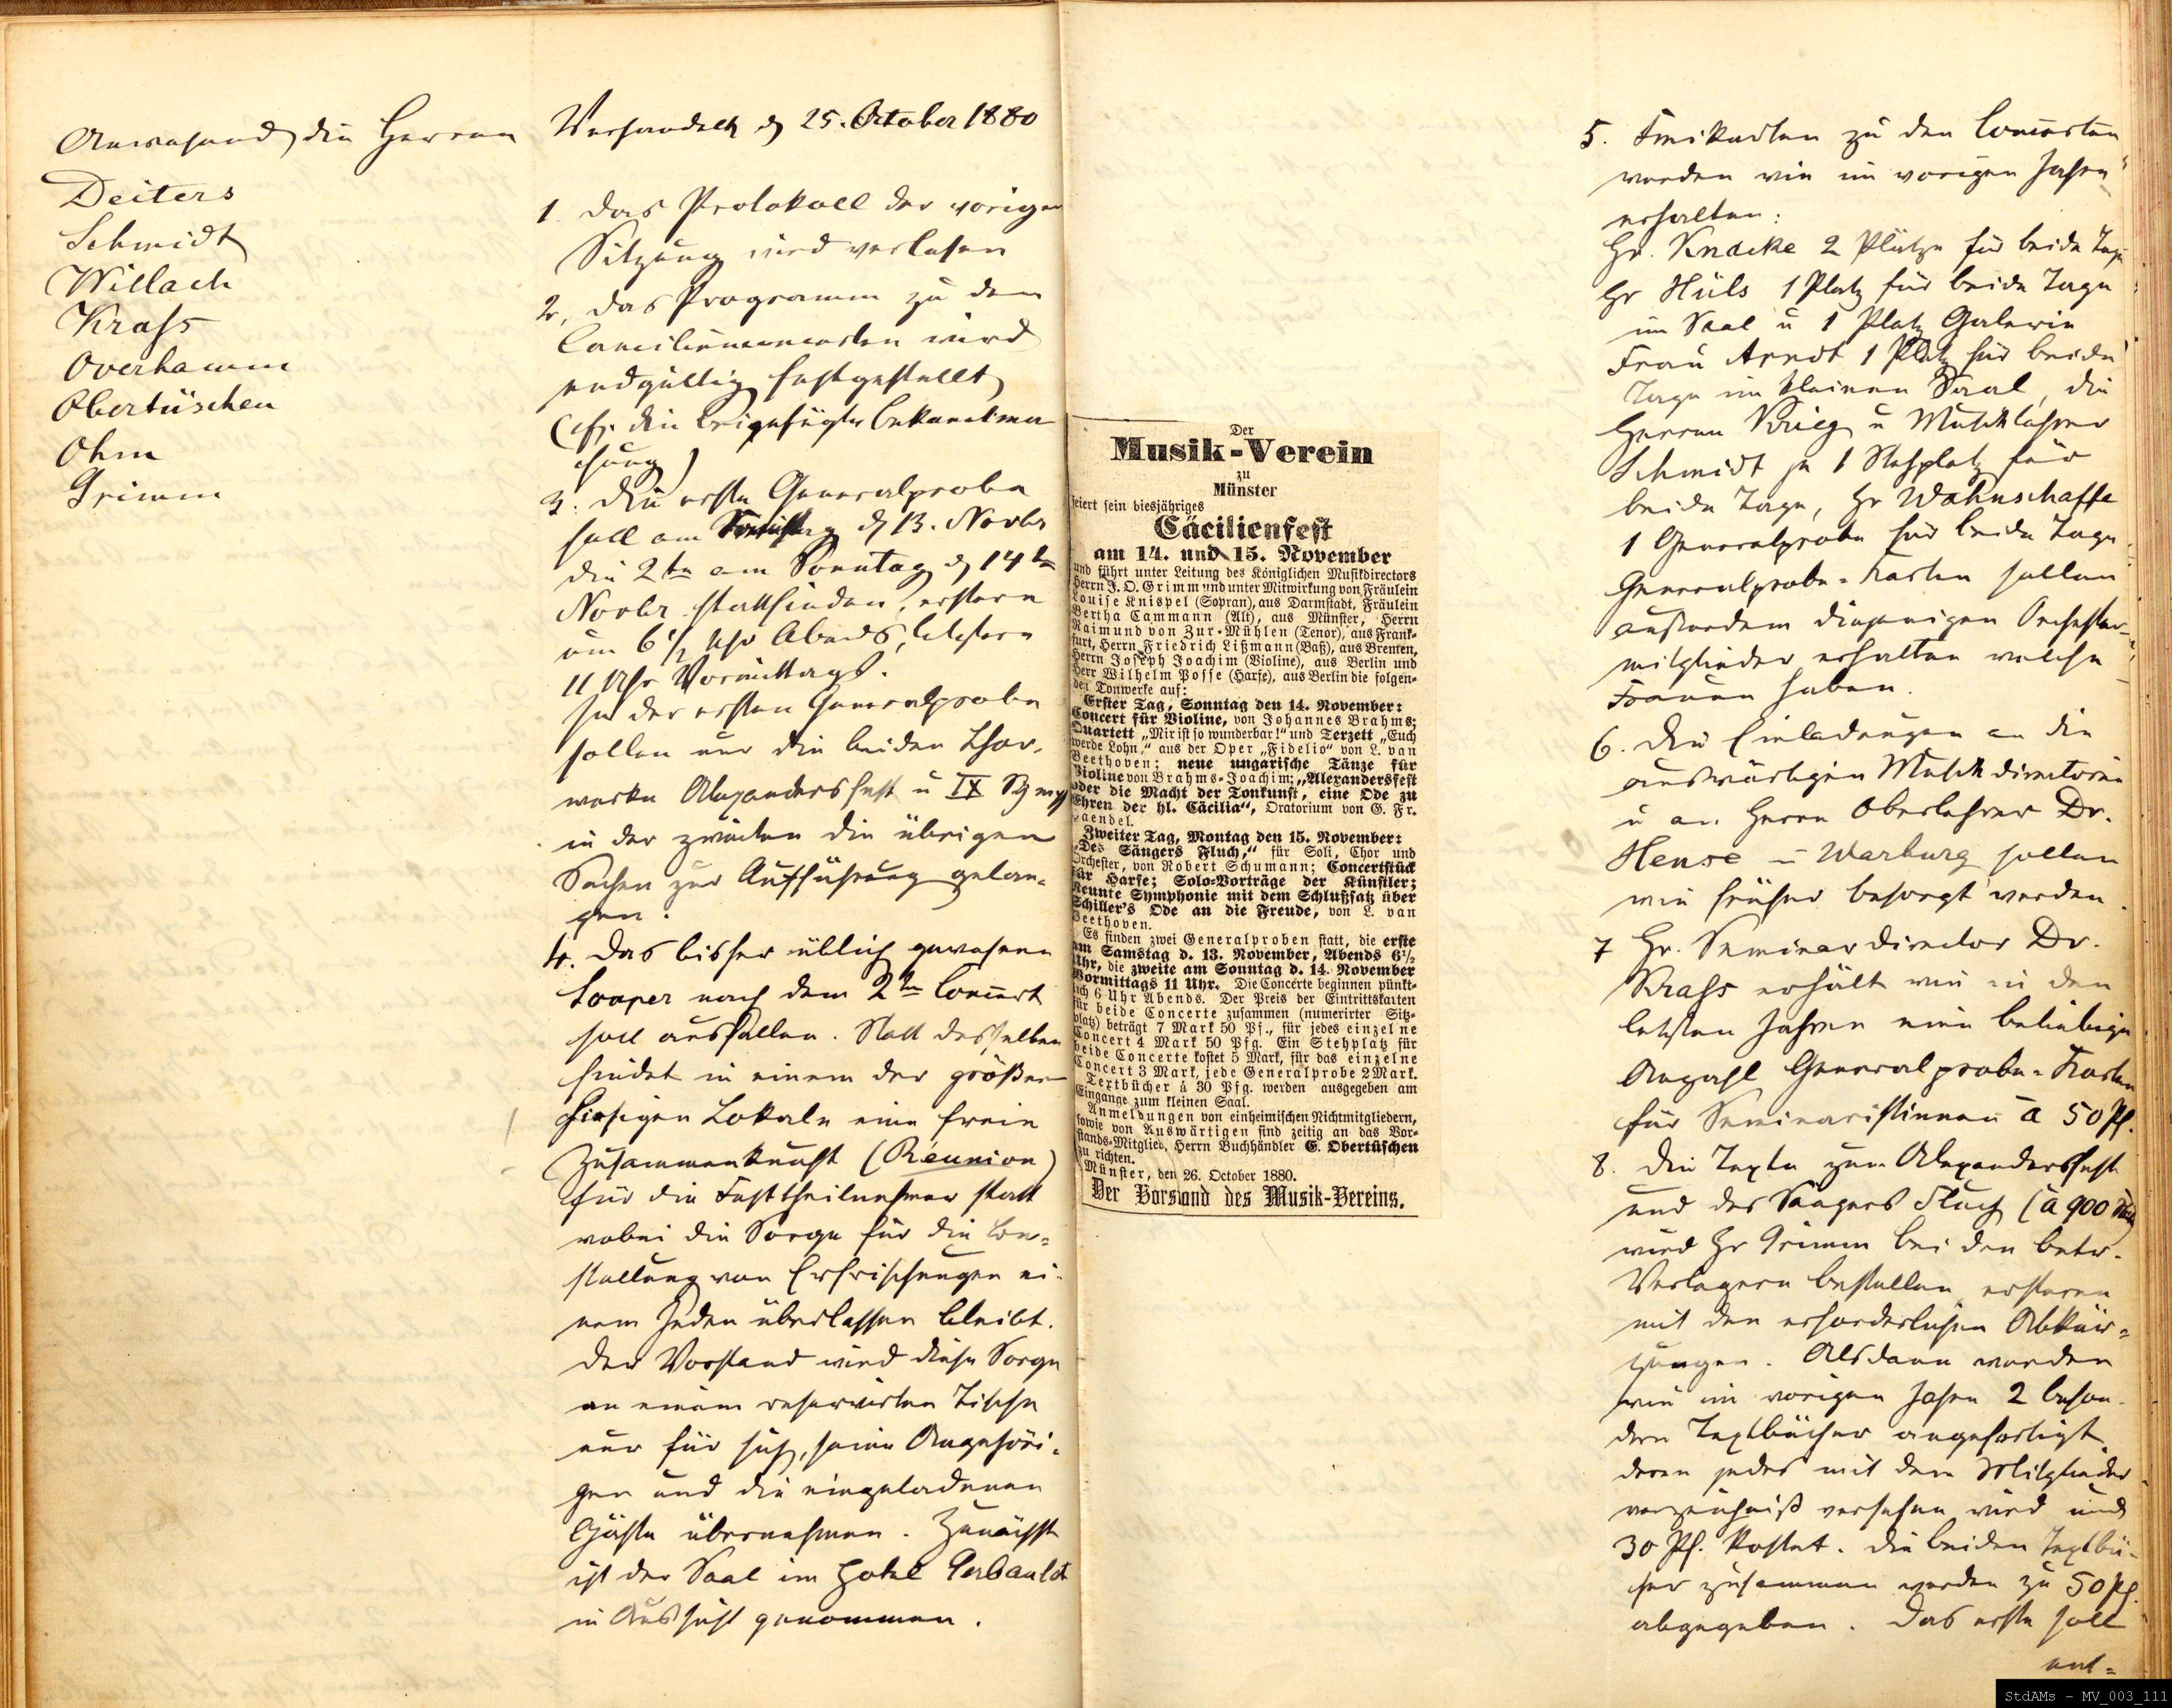 Anwesend die Herren
Deiters
Schmidt
Willach
Krass
Overhamm
Obertüschen
Ohm
Grimm
Verhandelt d 25. October 1880
1. Das Protokoll der vorigen
Sitzung wird verlesen
2. Das Programm zu dem
Caecilienconcerten wird
endgültig festgestellt
(cfr. die beigefügte Bekanntma
chung)
3. Die erste Generalprobe
soll am d 13. Novbr
die 2te am Sonntag d 14ten
Novbr stattfinden, erstere
um 6 1/2 Uhr Abends, letztere
11 Uhr Vormittags.
In der ersten Generalprobe
sollen nur die beiden Chor-
werke Alexandersfest u IX Symph
in der zweiten die übrigen
Sachen zur Aufführung gelan-
gen.
4. Das bisher üblich gewesene
Souper nach dem 2ten Concert
soll ausfallen. Statt desselben
findet in einem der größeren
hiesigen Lokale eine freie
Zusammenkunft (Réunion)
für die Festtheilnehmer statt
wobei die Sorge für die Be-
stellung von Erfrischungen ei-
nem Jeden überlassen bleibt.
Der Vorstand wird diese Sorge
an einem reservirten Tische
nur für sich, seine Angehöri-
gen und die eingeladenen
Gäste übernehmen. Zunächst
ist der Saal im Hotel Gerbaulet
in Aussicht genommen.
Der
Musik-Verein
zu
Münster
feiert sein diesjähriges
Cäcilienfest
am 14. und 15. November
und führt unter Leitung des Königlichen Musikdirectors
Herrn J. O. Grimm und unter Mitwirkung von Fräulein
Louise Knispel (Sopran), aus Darmstadt, Fräulein
Bertha Cammann (Alt), aus Münster, Herrn
Raimund von Zur-Mühlen (Tenor), aus Frank-
furt, Herrn Friedrich Lißmann (Baß), aus Bremen,
Herrn Joseph Joachim (Violine), aus Berlin und
Herr Wilhelm Posse (Harfe), aus Berlin die folgen-
den Tonwerke auf:
Erster Tag, Sonntag den 14. November:
Concert für Violine, von Johannes Brahms;
Quartett „Mir ist so wunderbar!“ und Terzett „Euch
werde Lohn,“ aus der Oper „Fidelio“ von L. van
Beethoven; neue ungarische Tänze für
Violine von Brahms-Joachim; „Alexandersfest
oder die Macht der Tonkunst, eine Ode zu
Ehren der hl. Cäcilia“, Oratorium von G. Fr.
Haendel.
Zweiter Tag, Montag den 15. November:
„Des Sängers Fluch,“ für Soli, Chor und
Orchester, von Robert Schumann; Concertstück
für Harfe; Solo-Vorträge der Künstler;
Neunte Symphonie mit dem Schlußsatz über
Schiller's Ode an die Freude, von L. van
Beethoven.
Es finden zwei Generalproben statt, die erste
am Samstag d. 13. November, Abends 6 1/2
Uhr, die zweite am Sonntag d. 14. November
Vormittags 11 Uhr. Die Concerte beginnen pünkt-
lich 6 Uhr Abends. Der Preis der Eintrittskarten
für beide Concerte zusammen (numerirter Sitz-
platz) beträgt 7 Mark 50 Pf., für jedes einzelne
Concert 4 Mark 50 Pfg. Ein Stehplatz für
beide Concerte kostet 5 Mark, für das einzelne
Concert 3 Mark, jede Generalprobe 2 Mark.
Textbücher á 30 Pfg. werden ausgegeben am
Eingange zum kleinen Saal.
Anmeldungen von einheimischen Nichtmitgliedern,
sowie von Auswärtigen sind zeitig an das Vor-
stands-Mitglied, Herrn Buchhändler E. Obertüschen
zu richten.
Münster, den 26. October 1880.
Der Vorstand des Musik-Vereins.
5. Freikarten zu den Concerten
werden wie im vorigen Jahre
erhalten:
Hr. Knacke 2 Plätze für beide Tage
Hr Hüls 1 Platz für beide Tage
im Saal u 1 Platz Galerie
Frau Arndt 1 Platz für beide
Tage im kleinen Saal, die
Herren Krieg u Musiklehrer
Schmidt je 1 Stehplatz für
beide Tage, Hr Wahnschaffe
1 Generalprobe für beide Tage.
Generalprobe-Karten sollen
außerdem diejenigen Orchester-
mitglieder erhalten welche
Frauen haben.
6. Die Einladungen an die
auswärtigen Musikdirectoren
u an Herrn Oberlehrer Dr.
Hense in Warburg sollen
wie früher besorgt werden.
7 Hr. Seminardirector Dr.
Krass erhält wie in den
letzten Jahren eine beliebige
Anzahl Generalprobe-Karten
für Seminaristinnen à 50 Pf.
8. Die Texte zum Alexandersfest
und des Saengers Fluch (à 900 Stück)
wird Hr Grimm bei den betr.
Verlegern bestellen, ersteren
mit den erforderlichen Abkür-
zungen. Alsdann werden
wie im vorigen Jahre 2 beson-
dere Textbücher angefertigt
deren jedes mit dem Mitglieder
verzeichniß versehen wird und
30 Pf. kostet. Die beiden Textbü-
cher zusammen werden zu 50 Pf.
abgegeben. Das erste soll
ent=
StdAMs - MV_003_111